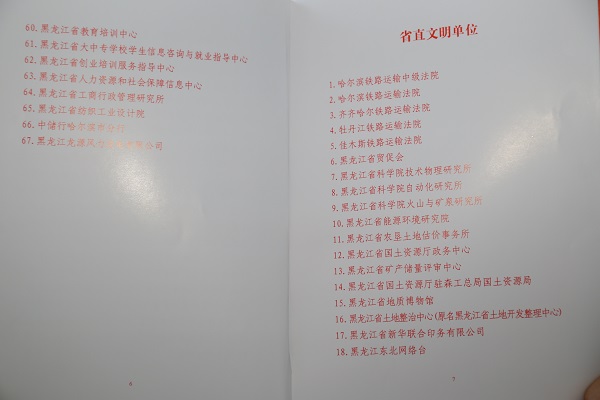 60. 黑龙江省教育培训中心
61. 黑龙江省大中专学校学生信息咨询与就业指导中心
62. 黑龙江省创业培训服务指导中心
63. 黑龙江省人力资源和社会保障信息中心
64. 黑龙江省工商行政管理研究所
65. 黑龙江省纺织工业设计院
66. 中储行哈尔滨市分行
67. 黑龙江龙源风力公司
6
省直文明单位
1. 哈尔滨铁路运输中级法院
2. 哈尔滨铁路运输法院
3. 齐齐哈尔铁路运输法院
4. 牡丹江铁路运输法院
5. 佳木斯铁路运输法院
6. 黑龙江省贸促会
7. 黑龙江省科学院技术物理研究所
8. 黑龙江省科学院自动化研究所
9. 黑龙江省科学院火山与矿泉研究所
10. 黑龙江省能源环境研究院
11. 黑龙江省农垦土地估价事务所
12. 黑龙江省国土资源厅政务中心
13. 黑龙江省矿产储量评审中心
14. 黑龙江省国土资源厅驻森工总局国土资源局
15. 黑龙江省地质博物馆
16. 黑龙江省土地整治中心(原名黑龙江省土地开发整理中心)
17. 黑龙江省新华联合印务有限公司
18. 黑龙江东北网络台
7